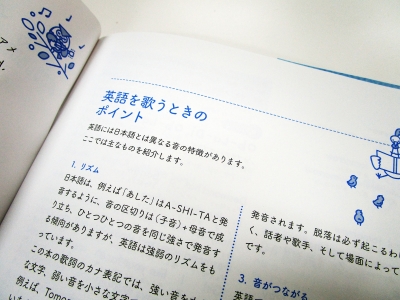 アメ
英語を歌うときの
ポイント
英語には日本語とは異なる音の特徴があります。
ここでは主なものを紹介します。
1. リズム
日本語は、例えば「あした」はA-SHI-TAと発
音するように、音の区切りは〈子音〉+母音で成
り立ち、ひとつひとつの音を同じ強さで発音す
る傾向がありますが、英語は強弱のリズムをも
っています。
この本の歌詞のカナ表記では、強い音を
な文字、弱い音を小さな文字で
例えば、Tomor
発音されます。脱落は必ず起こるわ
く、話者や歌手、そして場面によって
です。
3. 音がつながる
英語